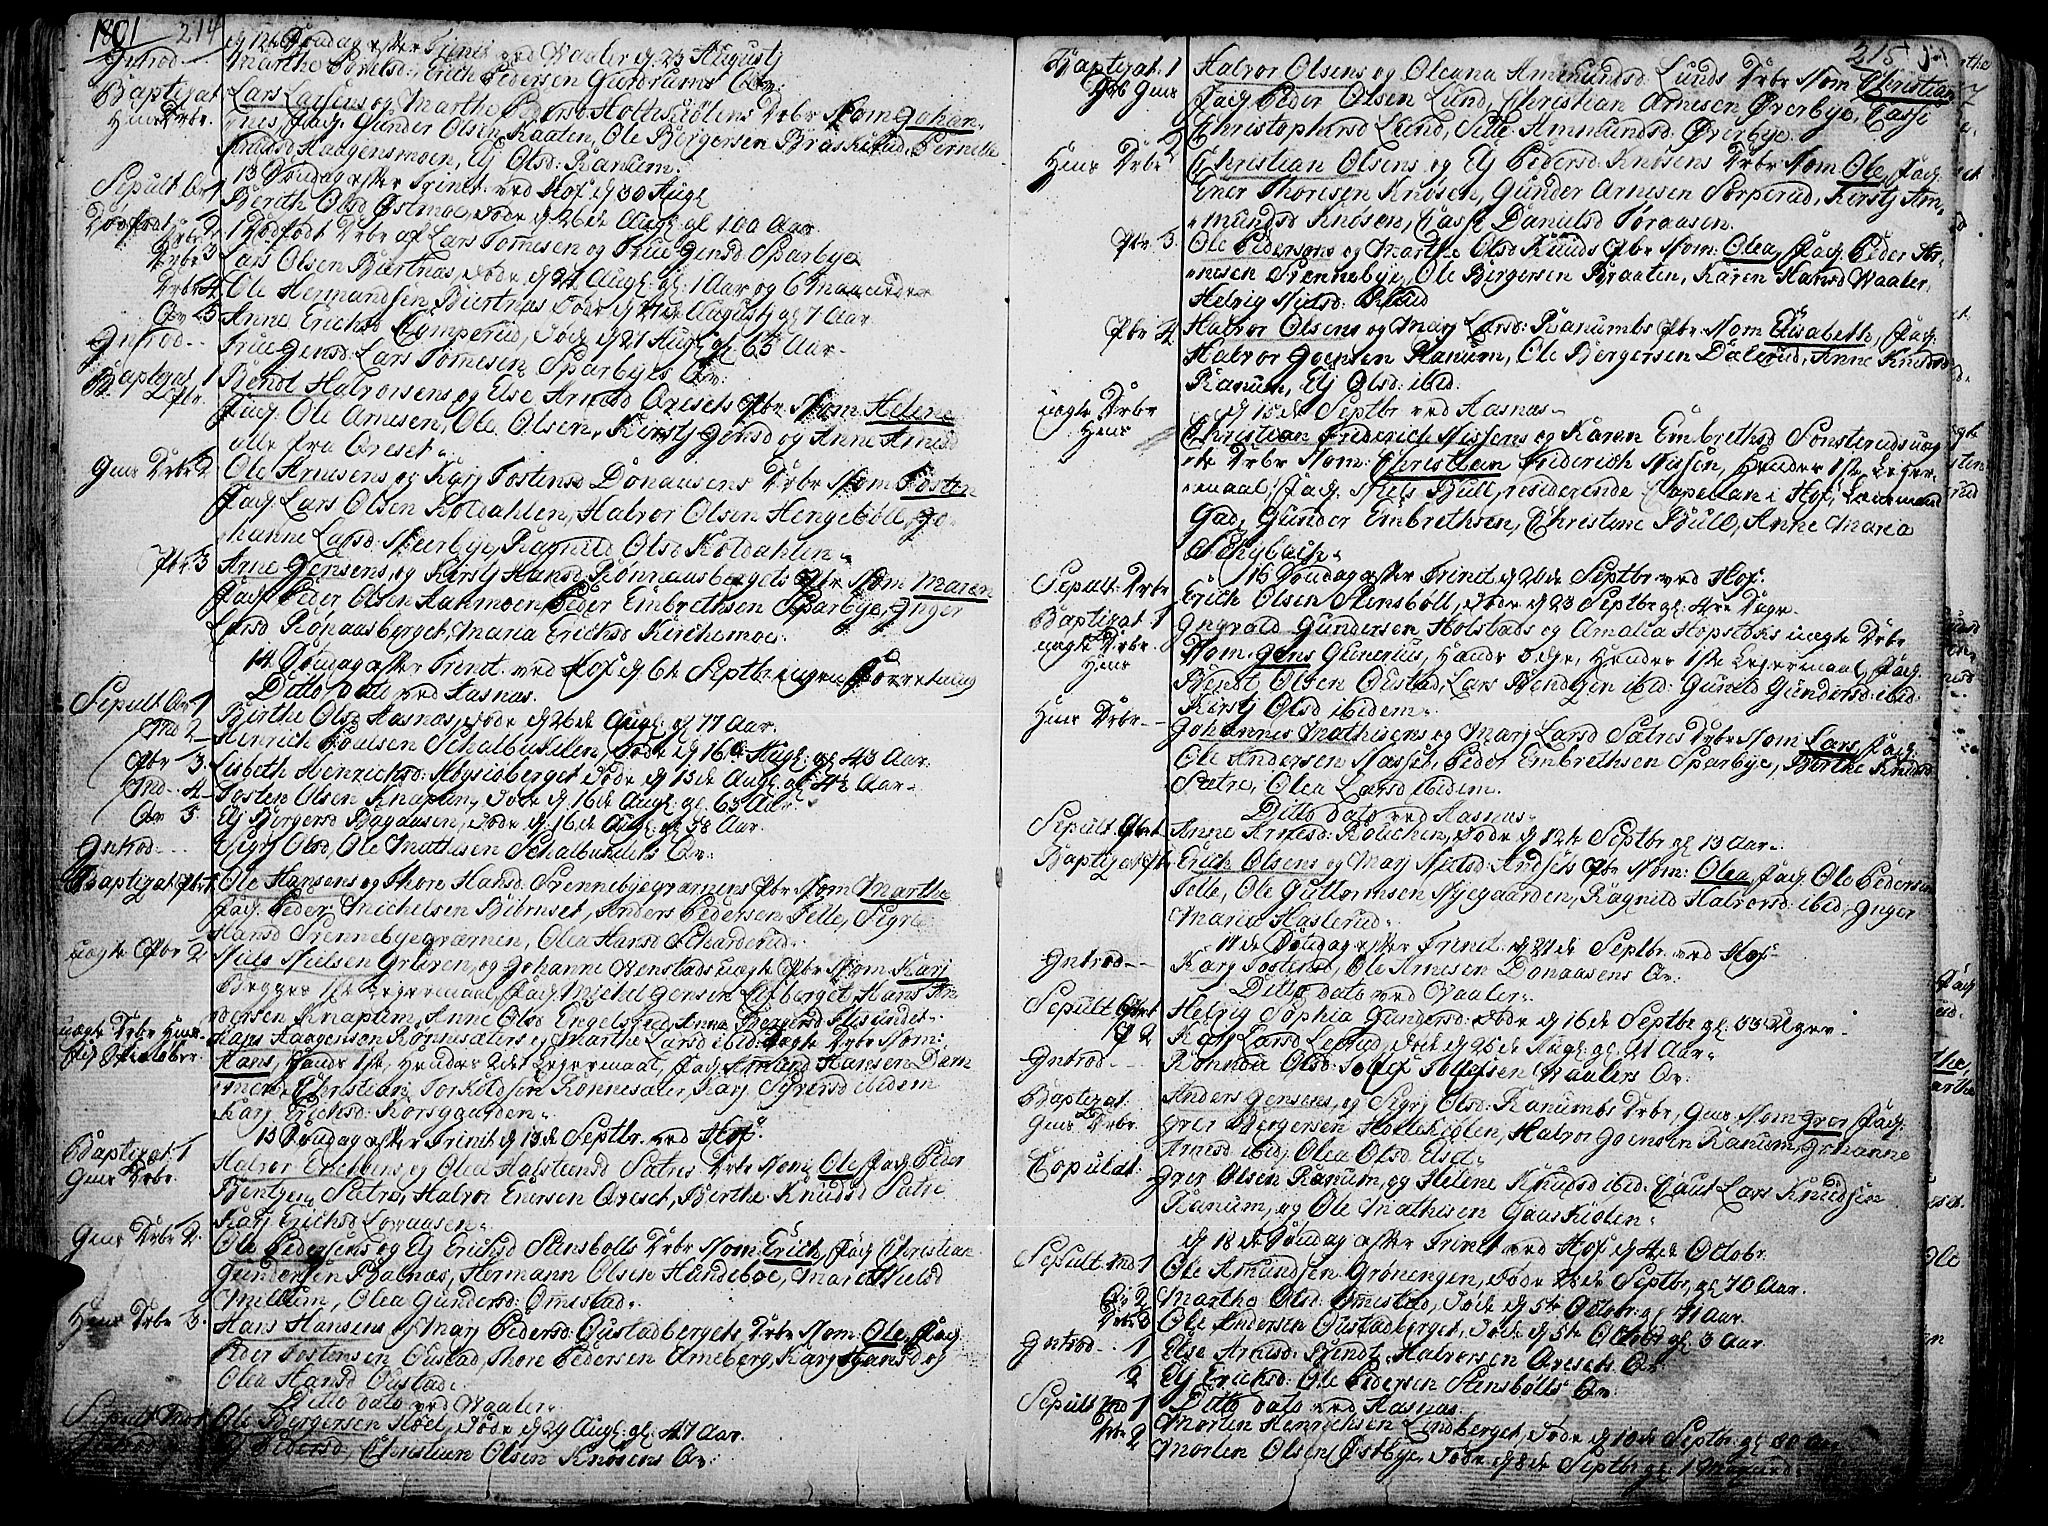 1801 214
d 12te Søndag efter Trinit ved Vaaler d 23 Augustj
Introd. Marthe Povelsd: Erich Pedersen Gundrums Qv:
Baptizat Lars Larsens og Marthe Pedersd Holtekiølens Drbr Nom Johan-
Hms Drbr. nes, Fad. Gunder Olsen Kaaten, Ole Børgersen Braskerud, Pernelle
Knudsd Haagensmoen, Elj Olsd: Ranum.
13 Søndag efter Trinit: ved Hof d 30 Augl
Sepult Qv 1 Berith Olsd Østmoe, døde d 26de Augl gl 100 Aar
Dødfødt Drbr 2 1 Dødfødt Drbr af Lars Tommesen og Frue Jensd Sparbye
Drbr 3 Lars Olsen Biertnæs, døde d 27 Augl: gl: 1 Aar og 6 Maaneder
Drbr 4 Ole Hermandsen Biertnes døde d 27de Augustj gl 7 Aar
Qv 5 Anne Erichsd Kamperud, døde d 27 Augl gl 65 Aar
Introd Frue Jensd: Lars Tommesen Sparbyes Qv:
Baptizat 1 Bendt Halvorsens og Else Arnesd Qvesets Pbr Nom: Helene
Pbr. Fad. Ole Arnesen, Ole Olsen, Kirstj Jensd og Anne Arnesd
alle fra Qveset
Gms Drbr 2 Ole Arnesens og Karj Tostensd Donaasens Drbr Nom Tosten
Fad: Lars Olsen Koldahlen, Halvor Olsen Hengebøll, Jo-
hanne Larsd: Skierbye, Ragnild Olsd Koldahlen
Pbr 3 Arne Jensens, og Kirstj Hansd Rønnaasbergets Pbr Nom Maren
Fad: Peder Olsen Aasmoen, Peder Embrethsen Sparbye, Inger
Larsd Rønaasberget, Maria Erichsd Kirchemoe.
14 Søndag efter Trinit. ved Hof d 6te Septbr ingen Forretning
Ditto Dato ved Aasnæs.
Sepult Qv 1 Birthe Olsd Aasnæs, døde d 26de Augl: gl 77 Aar
Md 2 Henrich Poulsen Schalbukilen, døde d 16de Augl: gl 43 Aar.
Pbr 3 Lisbeth Henrichsd: Abysieberget døde d 13de Augl: gl 4½ Aar
Md. 4 Tosten Olsen Knapum, døde d 16de Augl: gl. 63 Aar
Qv 5. Elj Børgersd Bogaasen, døde d 16de Augl: gl 58 Aar.
Introd. Sigrj Olsd, Ole Mathisen Schalbukilens Qv:
Baptizat Pbr 1. Ole Hansens og Thore Hansd: Svennebyegræmens Pbr Nom Marthe
Fad: Peder Michelsen Biørnset, Anders Pedersen Telle, Sigrj
Hansd Svennebyegræmen, Olea Hansd Scharderud.
uægte Pbr 2 Niels Nielsen Gruven, og Johanne Venstads uægte Pbr Nom: Karj
Begges 1ste Lejermaal, Fad: Michel Jensen Lisberget, Hans An-
dersen Knapum, Anne Olsd Engelsrud, Anne Børgersd Alsundet.
uægte Drbr Hms Hans Haagensen Rønnesæters og Marthe Larsd ibid: uægte Drbr Nom:
Hans, Hands 1ste, Hendes 2det Lejermaal, Fad: Amund Hansen Dam
Christian Torkildsen Rønnesæter, Karj Syversd ibidem
Karj Erichsd: Korsgaarden
15 Søndag efter Trinit d 13de Septbr. ved Hof.
Baptizat 1 Halvor Enersens og Olea Halstensd Sætres Drbr Nom: Ole, Fad: Peder
Gms Drbr. Bentzen Sætre, Halvor Enersen Qveset, Birthe Knudsd Sætre
Karj Erichsd Lovaasen
Gms Drbr 2. Ole Pedersens og Elj Erichsd Stensbølls Drbr Nom: Erich, Fad: Christian
Gundersen Balnæs, Hermann Olsen Hundeboe, Maria Nielsd
Mellum, Olea Gundersd: Ommestad.
Hms Drbr 3. Hans Hansens og Marj Pedersd: Oustadbergets Drbr Nom: Ole, Fad:
Peder Tostensen Oustad, Thore Pedersen Arneberg, Karj Hansd og
Olea Hansd Oustad.
Ditto dato ved Vaaler.
Sepult Md 1 Ole Børgersen Noel, døde d 29 Augl: gl: 47 Aar.
Introd Elj Pedersd, Christian Olsen Knosens Qv:
215
Baptizat. 1 Halvor Olsens og Oleana Amundsd Lunds Drbr Nom Christian
Gds Gms Fad: Peder Olsen Lund, Christian Arnesen Øverbye, Tasje
Christophersd Lund, Sille Ammundsd: Øverbye.
Hms Drbr 2 Christian Olsens og Elj Pedersd: Knosens Drbr Nom Ole, Fad:
Ener Thoresen Knosen, Gunder Arnesen Sorperud, Kirstj Am-
mundsd Knosen, Tasse Danielsd Toraasen.
Pbr 3 Ole Pedersens og Marthe Olsd Ruuds Pbr Nom: Olea, Fad: Peder Ar-
nesen Svennebye, Ole Børgersen Braaten, Karen Hansd Vaaler,
Helvig Nielsd: Ruud
Pbr 4 Halvor Olsens og Marj Larsd: Ranumbs Pbr Nom Elisabeth, Fad:
Halvor Joensen Ranum, Ole Børgersen Dalerud, Anne Knudsd
Ranum, Elj Olsd: ibid:
d 15de Septbr ved Aasnæs
uægte Drbr Hms Christian Frideriech Nissens og Karen Embrethsd Sønsteruds uæg-
te Drbr Nom: Christian Friderich Nissen, Hendes 1ste Lejer-
maal, Fad: Niels Bull, residerende Capellan i Hof, Lænsmand
Gad, Gunder Embrethsen, Christine Bull, Anne Maria
Schybach
16 Søndag efter Trinit d 20de Septbr ved Hof.
Sepult Drbr Erich Olsen Stensbøll, døde d 23 Septbr gl: 4re Dage
Baptizat 1 Ingvold Gundersen Holstads og Amalia Hopstoks uægte Drbr
uægte Drbr. Hms Nom: Jens Gunerius, Hands 3dje, Hendes 1ste Lejermaal, Fad:
Bendt Olsen Oustad, Lars Bendtzen ibid: Gunild Gundersd: ibid:
Kirstj Olsd ibidem
Hms Drbr Johannes Mathisens og Marj Larsd Sætres Drbr Nom Lars, Fad:
Ole Andersen Næsset, Peder Embrethsen Sparbye, Birthe Knudsd
Sætre, Olea Larsd ibidem.
Ditto dato ved Aasnæs
Sepult. Pbr 1 Anne Arnesd: Kouchin, døde d 12te Septbr gl 13 Aar.
Baptizat Pbr Erich Olsens og Marj Nielsd: Arnseis Pbr Nom: Olea, Fad: Ole Pedersen
Telle, Ole Guttormsen Nyegaarden, Ragnild Halvorsd: ibid: Inger
Maria Haslerud
17de Søndag efter Trinit. d 27de Septbr ved Hof
Introd Karj Tostensd, Ole Arnesen Donaasens Qv:
Ditto dato ved Vaaler.
Sepult Pbr 1 Helvig Sophia Gundersd: døde d 16de Septbr gl: 33 Uger
Qv 2 Karj Larsd Leerud, døde d 26de Augl: gl: 21 Aar
Introd Ronnou Olsd: Vaalers Qv:
Baptizat. Anders Jensens, og Sigrj Olsd: Ranumbs Drbr, Gms Nom Iver, Fad:
Gms Drbr. Iver Børgersen Holtekiølen, Halvor Joensen Ranum, Johanne
Arnesd ibid, Olea Olsd. Elset
Copulat: Iver Olsen Ranum, og Helene Knudsd ibid: Caut: Lars Knudsen
Ranum, og Ole Mathisen Gaaskiølen
d 18de Søndag efter Trinit ved Hof d 4de Octobr.
Sepult. Md 1 Ole Amundsen Grønengen, døde d 28de Septbr, gl 70 Aar.
Qv 2 Marthe Olsd: Ommestad, døde d 5te Octobr: gl 71 Aar.
Drbr 3 Ole Andersen Oustadberget, døde d 5te Octobr gl 3 Aar
Introd. 1 Else Arnesd: Bendt Halvorsen Qvesets Qv:
2 Elj Erichsd: Ole Pedersen Stensbølls Qv:
Ditto dato ved Aasnæs.
Sepult Md 1 Morten Henrichsen Lindberget, døde d 10de Septbr: gl 80 Aar
Drbr 2 Morten Olsen Østbye, døde d 8de Septbr gl. 1 Maaned.